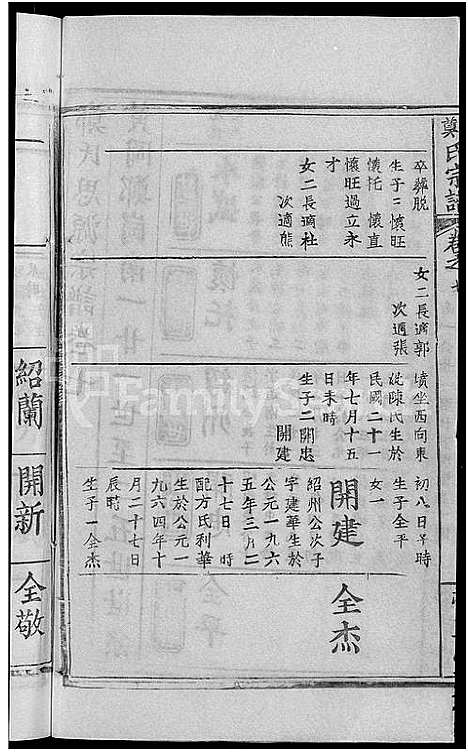 鄭氏宗譜
卒葬脫
生子二 懷旺
懷托 懷直
懷旺過立永
才
女二長適杜
次適熊
女二長適郭
次適張
墳坐西向東
妣陳氏生於
民國二十一
年七月十五
日未時
生子二開忠
開建
初八日子時
生子全平
女一
開建
紹州公次子
字建華生於
公元一九六
五年三月二
十七日 時
配方氏利華
生於公元一
九六四年十
月二十七日
辰時
生子一全杰
全杰
紹蘭
開新
全敬
FamilyS